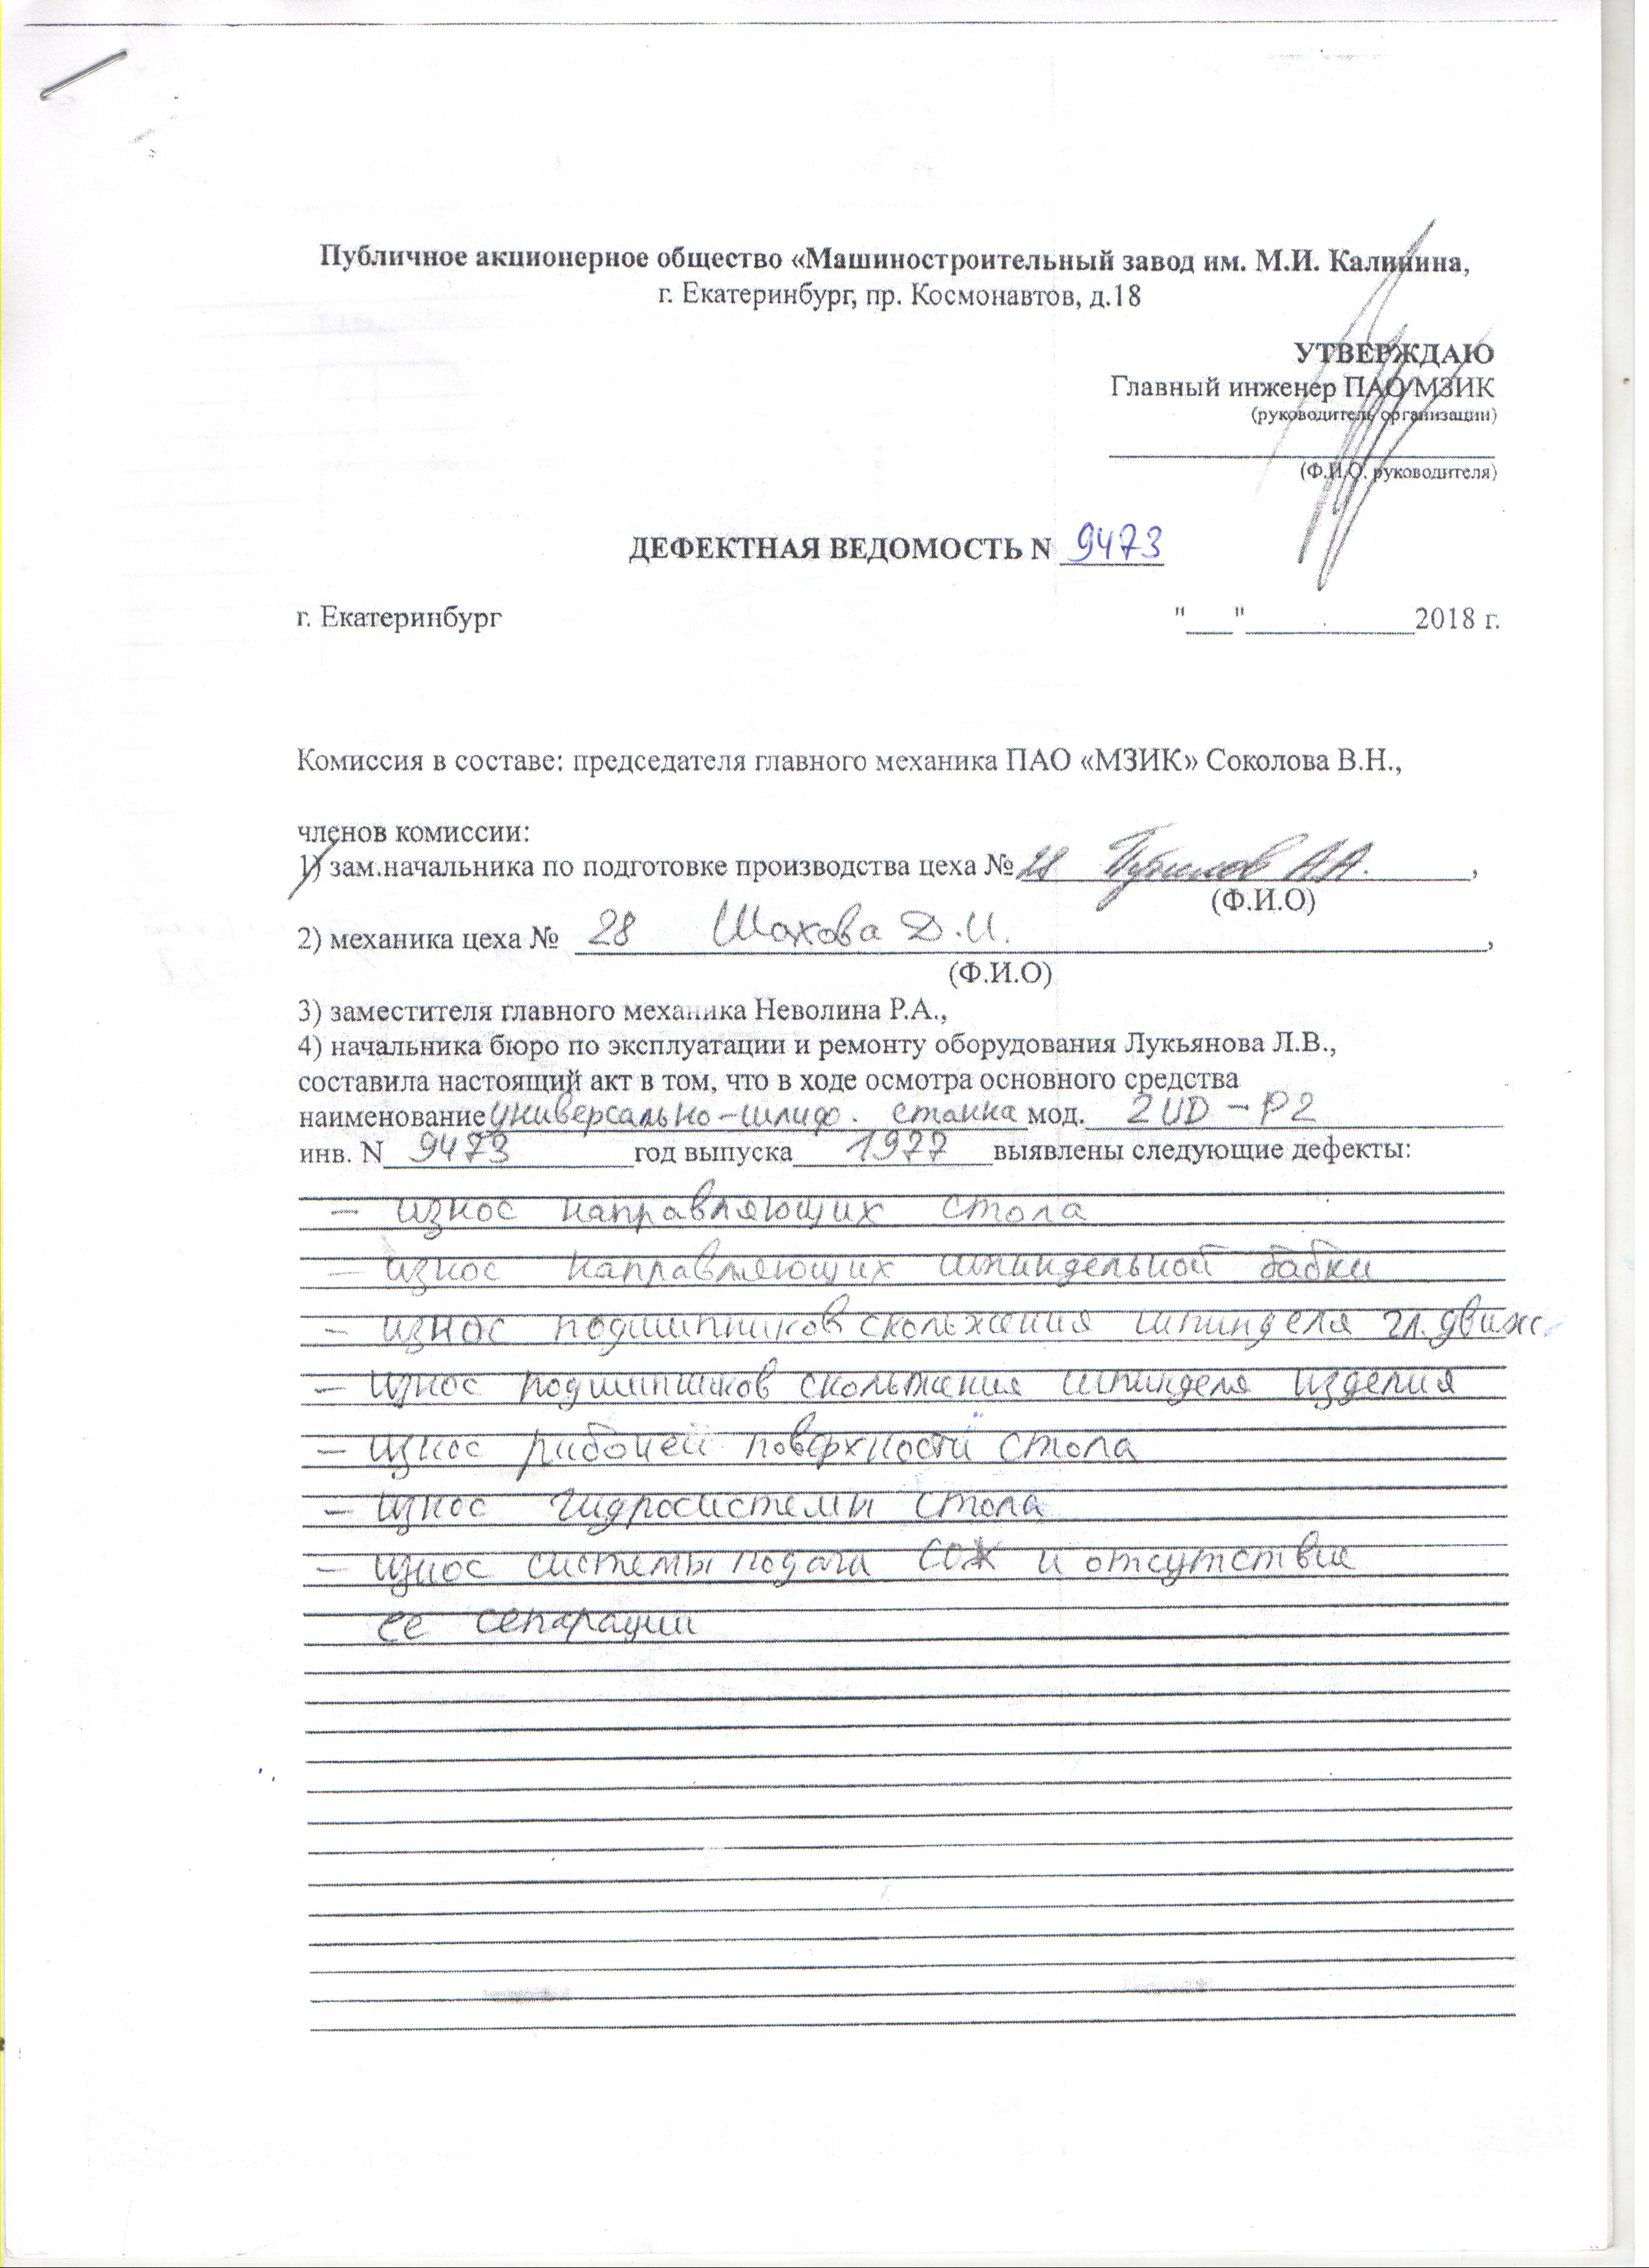 Публичное акционерное общество «Машиностроительный завод им. М.И. Калинина,
г. Екатеринбург, пр. Космонавтов, д.18
УТВЕРЖДАЮ
Главный инженер ПАО МЗИК
(руководитель организации)
(Ф.И.О. руководителя)
ДЕФЕКТНАЯ ВЕДОМОСТЬ N 9473
г. Екатеринбург "___"____________2018 г.
Комиссия в составе: председателя главного механика ПАО «МЗИК» Соколова В.Н.,
членов комиссии:
1) зам.начальника по подготовке производства цеха № 28 А.А.,
(Ф.И.О)
2) механика цеха № 28 Шахова Д.И.,
(Ф.И.О)
3) заместителя главного механика Неволина Р.А.,
4) начальника бюро по эксплуатации и ремонту оборудования Лукьянова Л.В.,
составила настоящий акт в том, что в ходе осмотра основного средства
наименование универсально-шлиф. станка мод. 2UD-P2
инв. N 9473 год выпуска 1977 выявлены следующие дефекты:
- износ направляющих стола
- износ направляющих шпиндельной бабки
- износ подшипников скольжения шпинделя гл. движ.
- износ подшипников скольжения шпинделя изделия
- износ рабочей поверхности стола
- износ гидросистемы стола
- износ системы подачи СОЖ и отсутствие
ее сепарации